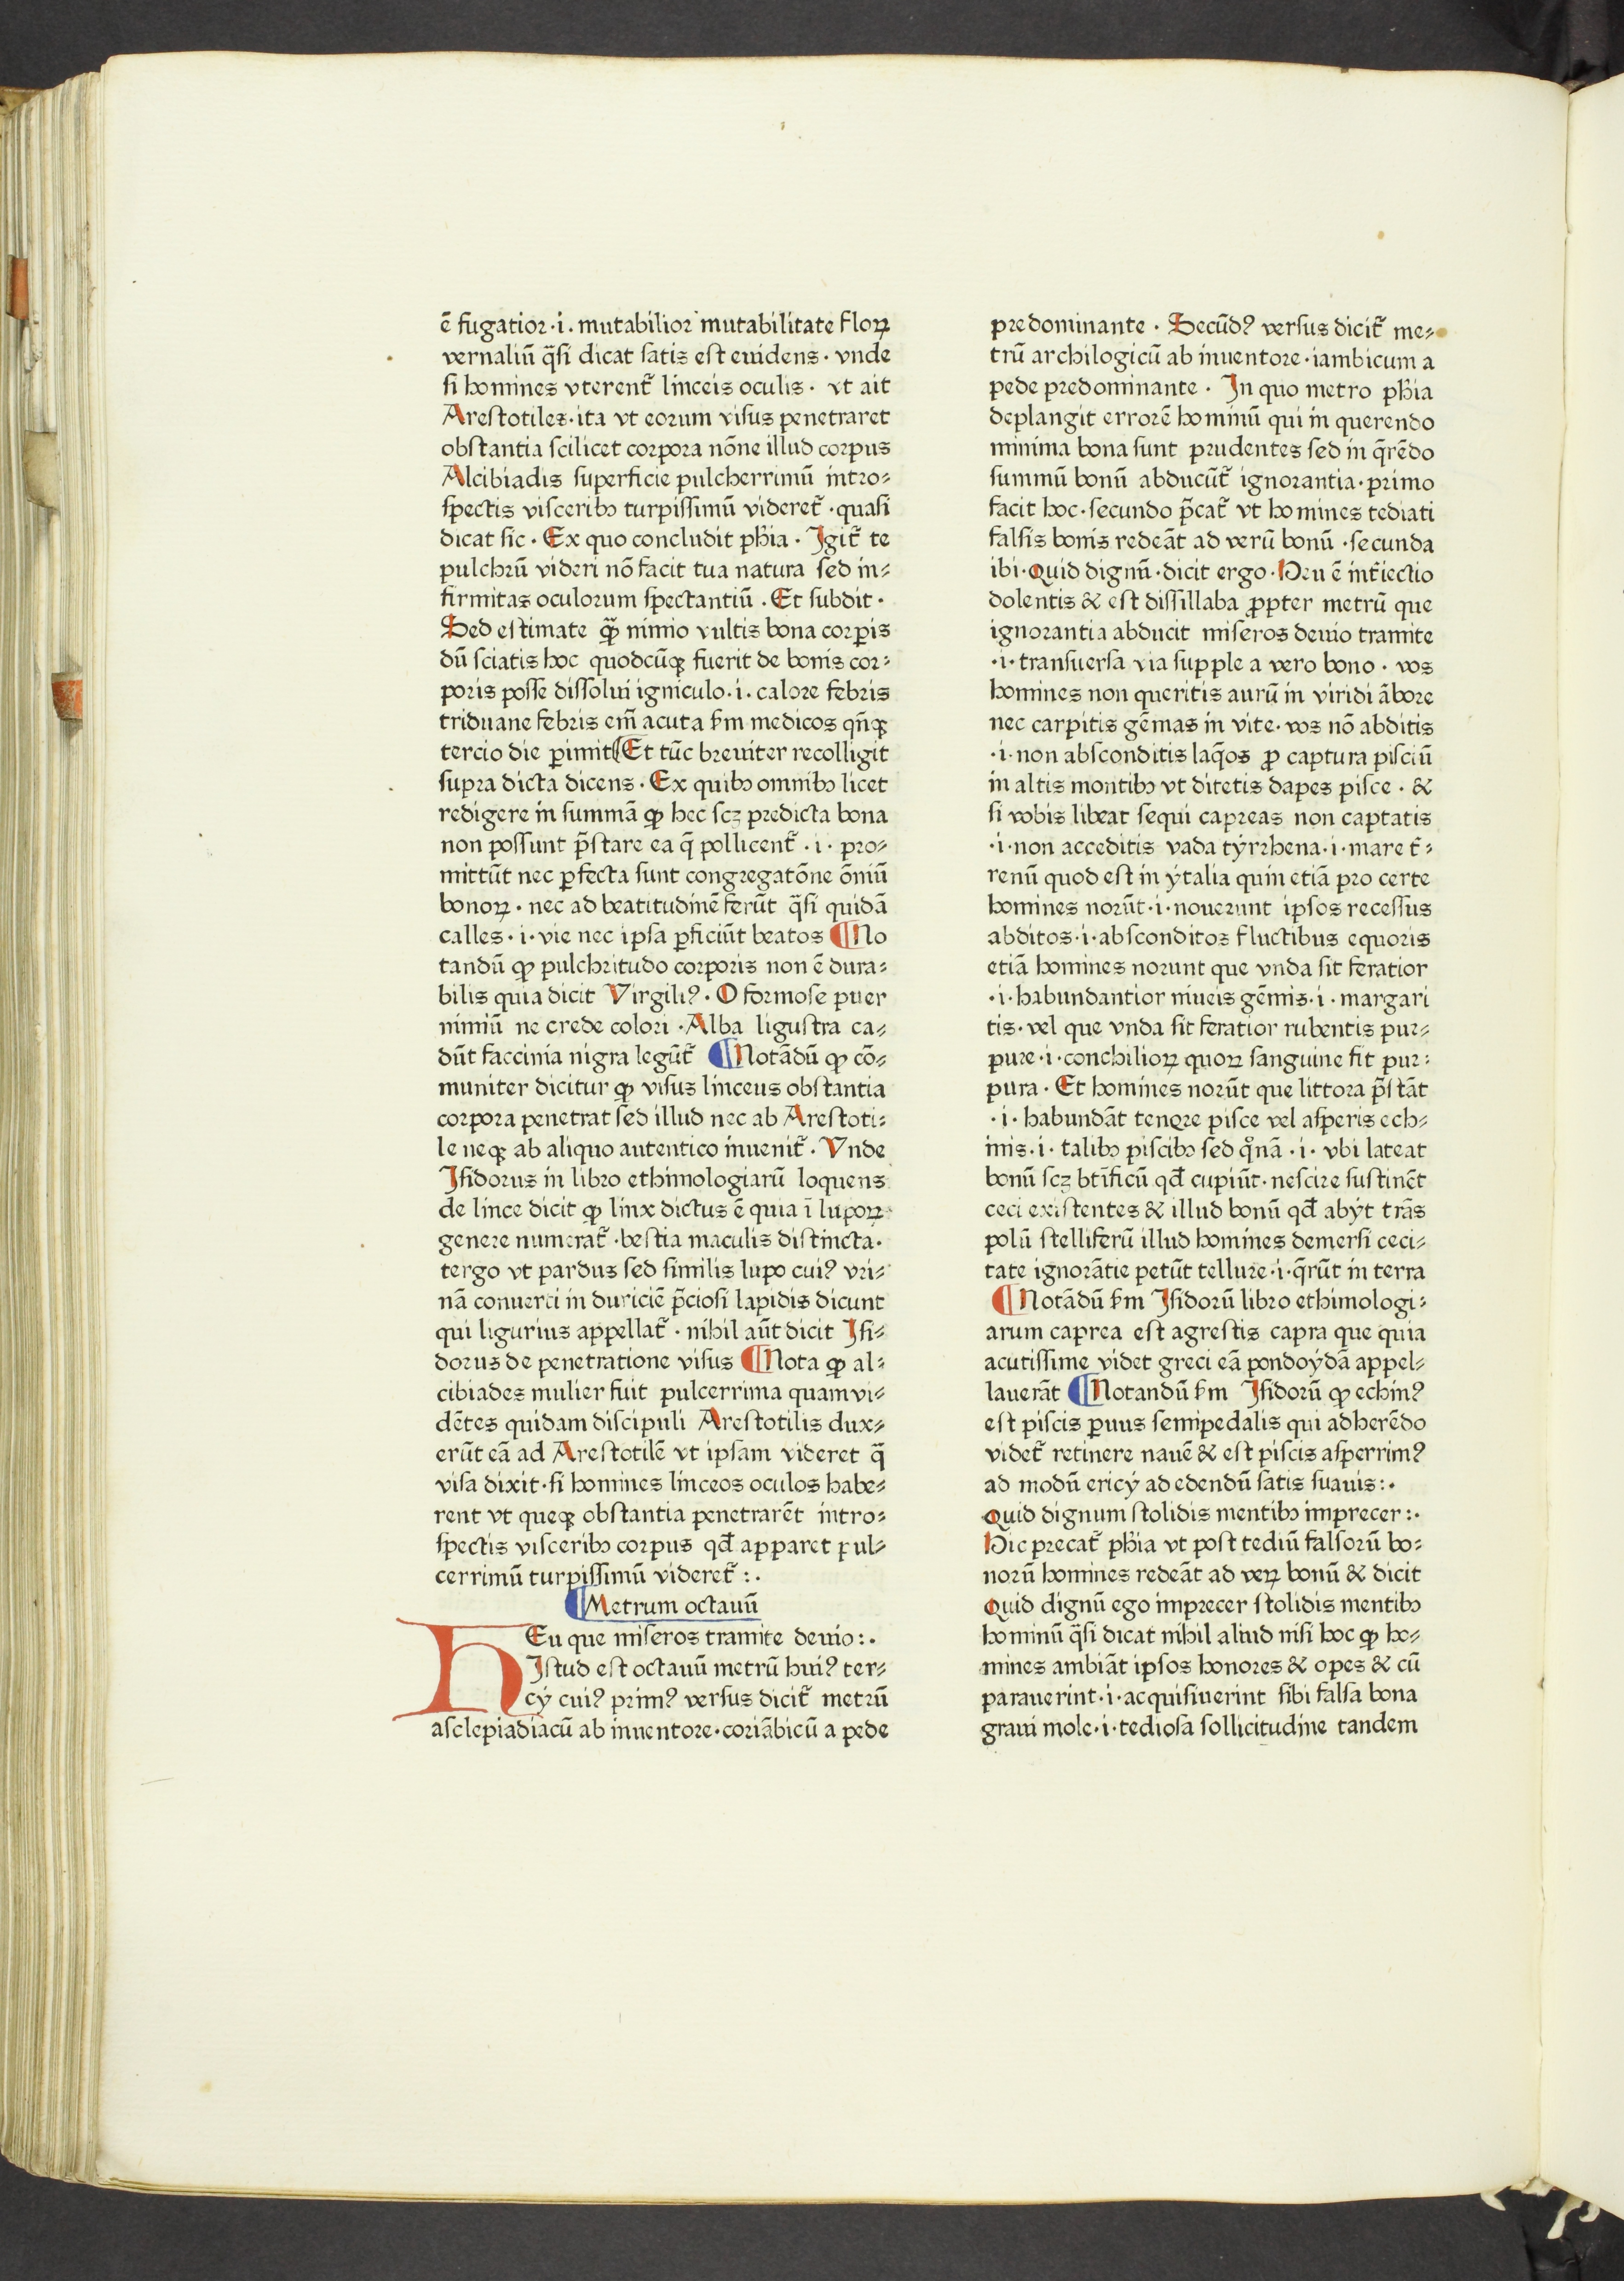 ē fugatior·i. mutabilior mutabilitate floꝝ
vernaliū q̄si dicat satis est euidens · vnde
si homines vterent᷑ linceis oculis · vt ait
Arestotiles·ita vt eorum visus penetraret
obstantia scilicet corpora nōne illud corpus
Alcibiadis superficie pulcherrimū intro-
spectis visceribꝫ turpissimū videret᷑ ·quasi
dicat sic · Ex quo concludit ph̄ia · Igit᷑ te
pulchrū videri nō facit tua natura sed in-
firmitas oculorum spectantiū · Et subdit ·
Sed estimate qȝ̄ nimio vultis bona corꝑis
dū sciatis hoc quodcūqꝫ fuerit de bonis cor-
poris posse dissolui igniculo·i· calore febris
triduane febris em̄ acuta ẜm medicos qn̄qꝫ
tercio die ꝑimit ¶Et tūc breuiter recolligit
supra dicta dicens · Ex quibꝫ omnibꝫ licet
redigere in summā ꝙ hec scꝫ predicta bona
non possunt p̄stare ea q̄ pollicent᷑ ·i· pro-
mittūt nec ꝑfecta sunt congregatōne ōniū
bonoꝝ · nec ad beatitudinē ferūt q̄si quidā
calles·i·vie nec ipsa ꝑficiūt beatos ¶No
tandū ꝙ pulchritudo corporis non ē dura-
bilis quia dicit Virgiliꝰ · O formose puer
nimiū ne crede colori · Alba ligustra ca-
dūt faccinia nigra legūt᷑ ¶Notādū ꝙ cō-
muniter dicitur ꝙ visus linceus obstantia
corpora penetrat sed illud nec ab Arestoti-
le neqꝫ ab aliquo autentico inuenit᷑ · Vnde
Isidorus in libro ethimologiarū loquens
de lince dicit ꝙ linx dictus ē quia ī lupoꝝ
genere numerat᷑ ·bestia maculis distincta·
tergo vt pardus sed similis lupo cuiꝰ vri-
nā conuerti in duriciē p̄ciosi lapidis dicunt
qui ligurius appellat᷑ · nihil aūt dicit Isi-
dorus de penetratione visus ¶Nota ꝙ al-
cibiades mulier fuit pulcerrima quam vi-
dētes quidam discipuli Arestotilis dux-
erūt eā ad Arestotilē vt ipsam videret q̄
visa dixit·si homines linceos oculos habe-
rent vt queqꝫ obstantia penetrarēt intro-
spectis visceribꝫ corpus qd̄ apparet pul-
cerrimū turpissimū videret᷑ :·
¶Metrum octauū
HEu que miseros tramite deuio:·
Istud est octauū metrū huiꝰ ter-
cÿ cuiꝰ primꝰ versus dicit᷑ metrū
asclepiadiacū ab inuentore·coriābicū a pede
predominante · Secūdꝰ versus dicit᷑ me-
trū archilogicū ab inuentore·iambicum a
pede predominante · In quo metro ph̄ia
deplangit errorē hominū qui in querendo
minima bona sunt prudentes sed in q̄rēdo
summū bonū abducūt᷑ ignorantia·primo
facit hoc·secundo p̄cat᷑ vt homines tediati
falsis bonis redeāt ad verū bonū ·secunda
ibi·Quid dignū·dicit ergo·Heu ē int̄iectio
dolentis & est dissillaba ꝓpter metrū que
ignorantia abducit miseros deuio tramite
·i·transuersa via supple a vero bono · vos
homines non queritis aurū in viridi ābore
nec carpitis gēmas in vite·vos nō abditis
·i·non absconditis laq̄os ꝓ captura pisciū
in altis montibꝫ vt ditetis dapes pisce · &
si vobis libeat sequi capreas non captatis
·i·non acceditis vada tÿrrhena·i·mare t̄-
renū quod est in ÿtalia quin etiā pro certe
homines norūt·i·nouerunt ipsos recessus
abditos·i·absconditos fluctibus equoris
etiā homines norunt que vnda sit feratior
·i·habundantior niueis gēmis·i·margari
tis·vel que vnda sit feratior rubentis pur-
pure·i·conchilioꝝ quoꝝ sanguine fit pur-
pura · Et homines norūt que littora p̄stāt
·i·habundāt tenqre pisce vel asperis ech-
inis·i· talibꝫ piscibꝫ sed qͦnā ·i· vbi lateat
bonū scꝫ bt̄ificū qd̄ cupiūt·nescire sustinēt
ceci existentes & illud bonū qd̄ abÿt trās
polū stelliferū illud homines demersi ceci-
tate ignorātie petūt tellure·i·q̄rūt in terra
¶Notādū ẜm Isidorū libro ethimologi-
arum caprea est agrestis capra que quia
acutissime videt greci eā pondoÿdā appel-
lauerāt ¶Notandū ẜm Isidorū ꝙ echinꝰ
est piscis ꝑuus semipedalis qui adherēdo
videt᷑ retinere nauē & est piscis asperrimꝰ
ad modū ericÿ ad edendū satis suauis:·
Quid dignum stolidis mentibꝫ imprecer:·
Hic precat᷑ ph̄ia vt post tediū falsorū bo-
norū homines redeāt ad veꝝ bonū & dicit
Quid dignū ego imprecer stolidis mentibꝫ
hominū q̄si dicat nihil aliud nisi hoc ꝙ ho-
mines ambiāt ipsos honores & opes & cū
parauerint·i·acquisiuerint sibi falsa bona
graui mole·i·tediosa sollicitudine tandem